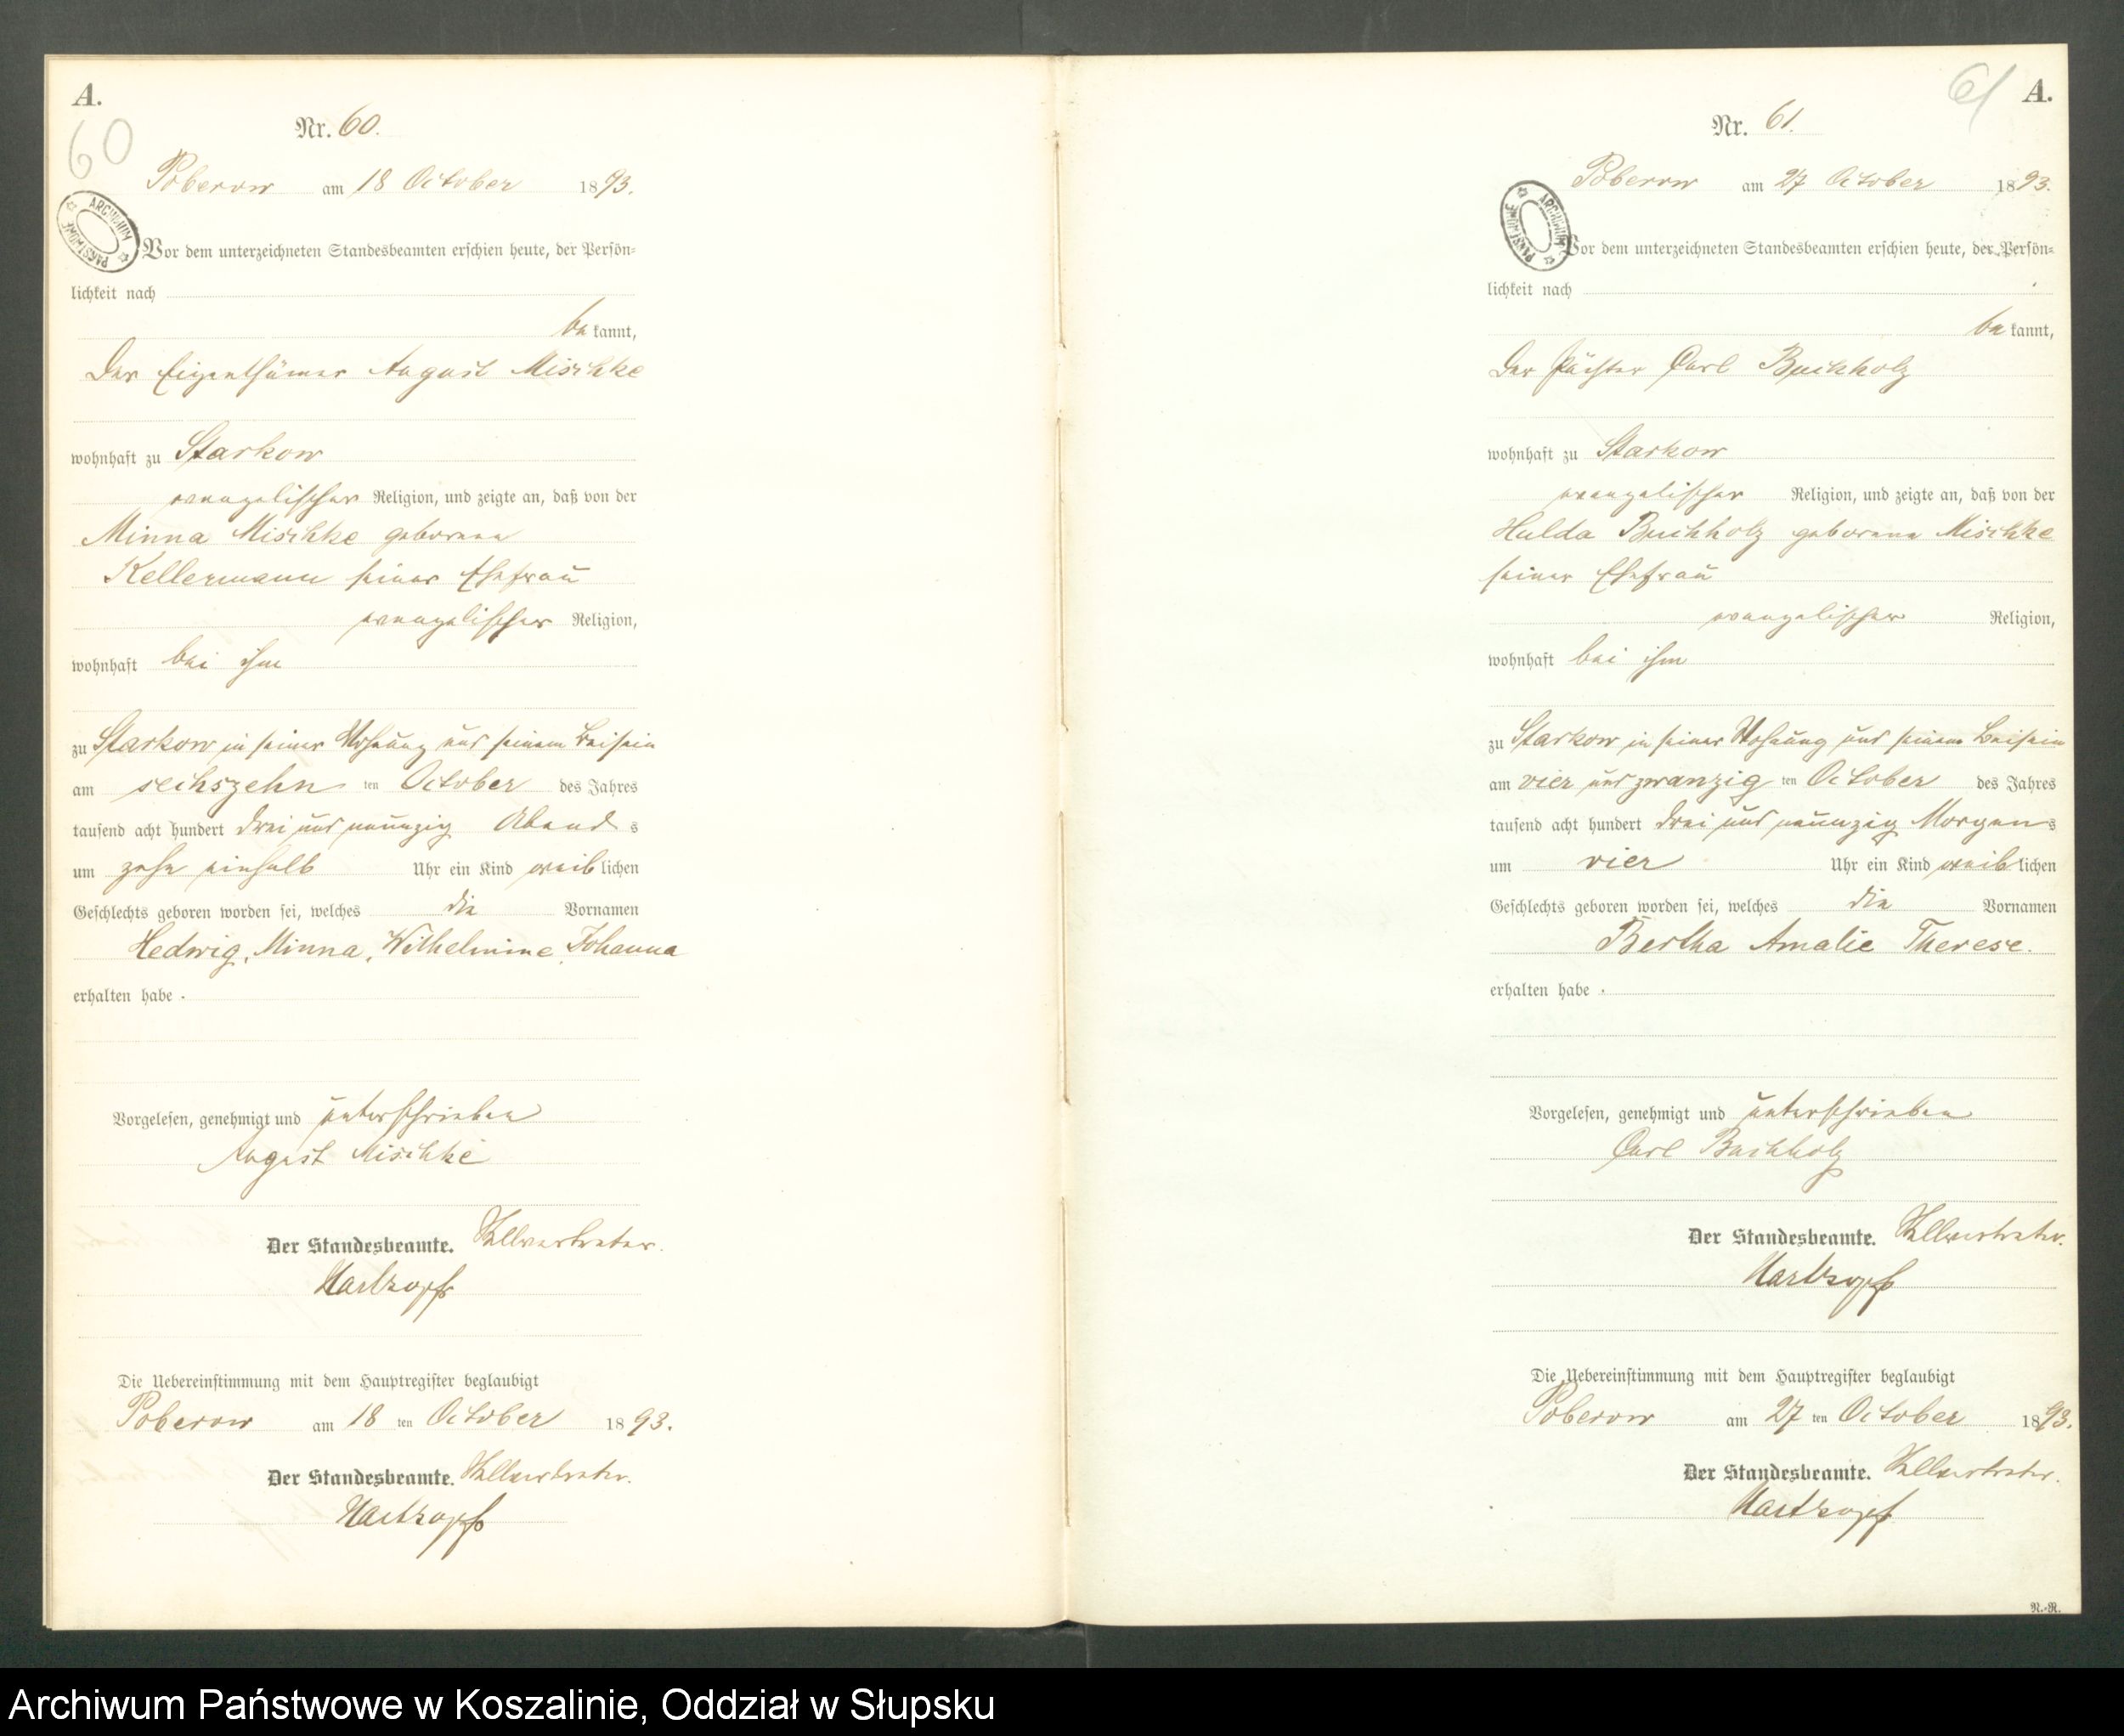 A.
60
Nr. 60.
Poberow am 18 October 1893.
ARCHIWUM PAŃSTWOWE
Vor dem unterzeichneten Standesbeamten erschien heute, der Persön-
lichkeit nach
be kannt,
Der Eigenthümer August Mischke
wohnhaft zu Starkow
evangelischer Religion, und zeigte an, daß von der
Minna Mischke geborene
Kellermann seiner Ehefrau
evangelischer Religion,
wohnhaft bei ihm
zu Starkow in seiner Wohnung und seinem Beisein
am sechszehn ten October des Jahres
tausend acht hundert drei und neunzig Abend s
um zehn einhalb Uhr ein Kind weib lichen
Geschlechts geboren worden sei, welches die Vornamen
Hedwig, Minna, Wilhelmine, Johanna
erhalten habe.
Vorgelesen, genehmigt und unterschrieben
August Mischke
Der Standesbeamte. Stellvertreter.
Hartkopf
Die Uebereinstimmung mit dem Hauptregister beglaubigt
Poberow am 18 ten October 1893.
Der Standesbeamte. Stellvertreter.
Hartkopf
61 A.
Nr. 61.
Poberow am 27 October 1893.
ARCHIWUM PAŃSTWOWE
Vor dem unterzeichneten Standesbeamten erschien heute, der Persön-
lichkeit nach
be kannt,
Der Pächter Carl Buchholz
wohnhaft zu Starkow
evangelischer Religion, und zeigte an, daß von der
Hulda Buchholz geborene Mischke
seiner Ehefrau
evangelischer Religion,
wohnhaft bei ihm
zu Starkow in seiner Wohnung und seinem Beisein
am vier und zwanzig ten October des Jahres
tausend acht hundert drei und neunzig Morgen s
um vier Uhr ein Kind weib lichen
Geschlechts geboren worden sei, welches die Vornamen
Bertha Amalie Therese.
erhalten habe.
Vorgelesen, genehmigt und unterschrieben
Carl Buchholz
Der Standesbeamte. Stellvertreter.
Hartkopf
Die Uebereinstimmung mit dem Hauptregister beglaubigt
Poberow am 27 ten October 1893.
Der Standesbeamte. Stellvertreter.
Hartkopf
R.-R.
Archiwum Państwowe w Koszalinie, Oddział w Słupsku